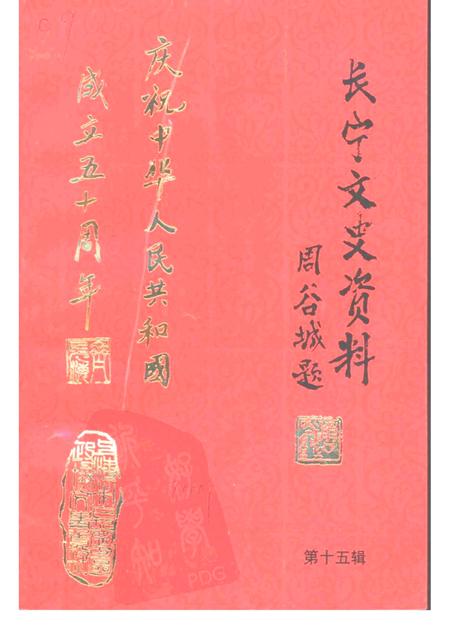 长宁文史资料
周谷城题
庆祝中华人民共和國
成立五十周年
第十五辑
PDG
09